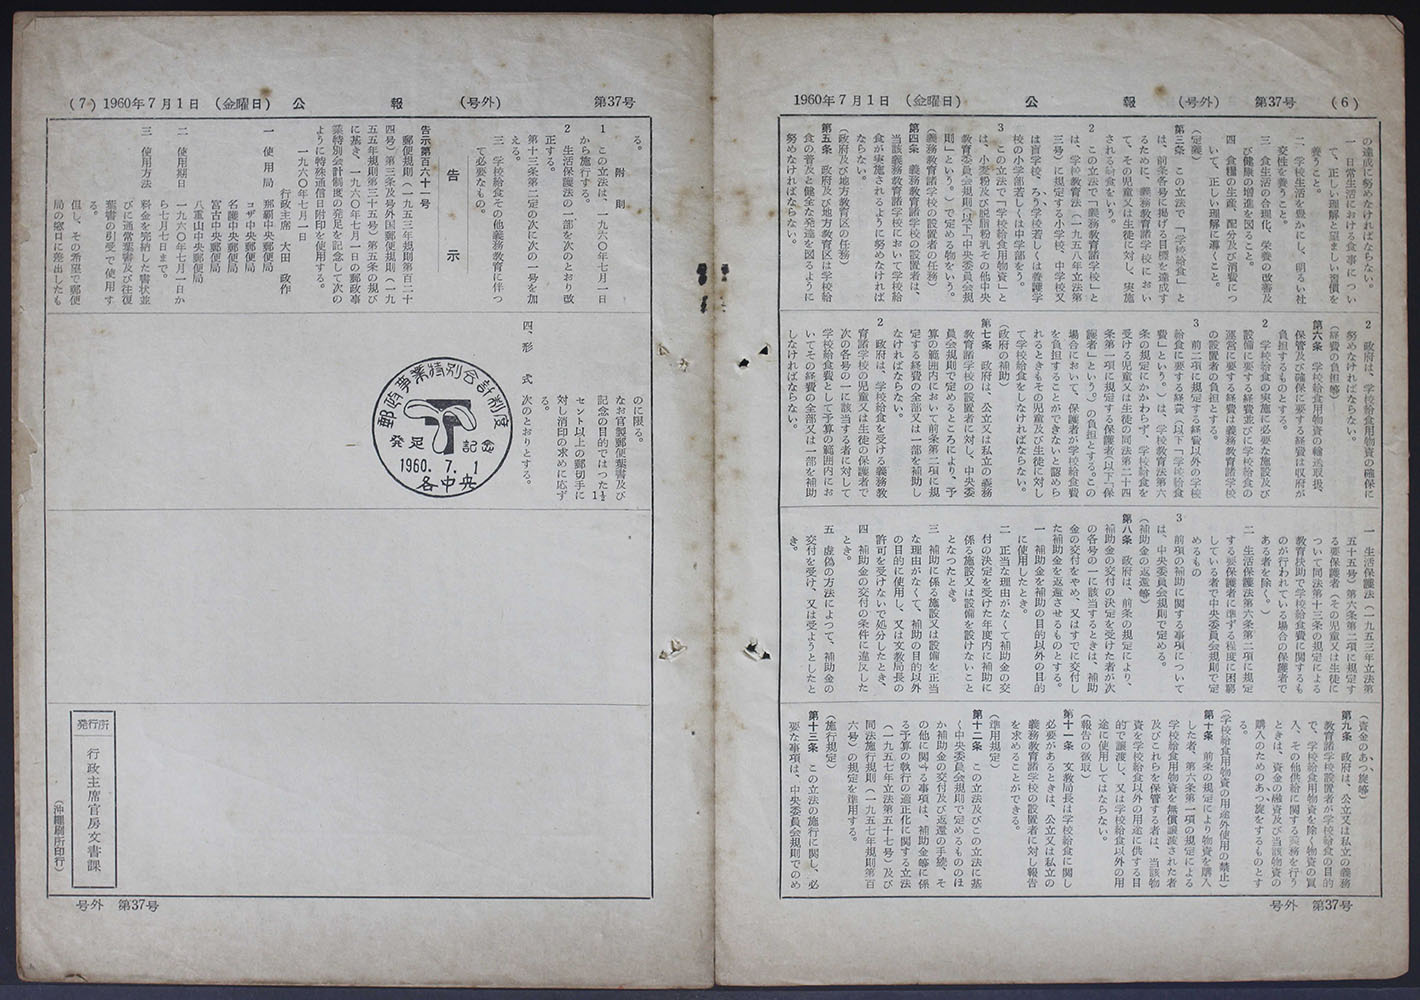 1960年7月1日 （金曜日） 公 報 （号外） 第37号 （6）
の達成に努めなければならない。
一 日常生活における食事につい
て、正しい理解と望ましい習慣を
養うこと。
二 学校生活を豊かにし、明るい社
交性を養うこと。
三 食生活の合理化、栄養の改善及
び健康の増進を図ること。
四 食糧の生産、配分及び消費につ
いて、正しい理解に導くこと。
（定義）
第三条 この立法で「学校給食」と
は、前条各号に掲げる目標を達成す
るために、義務教育諸学校におい
て、その児童又は生徒に対し、実施
される給食をいう。
2 この立法で「義務教育諸学校」と
は、学校教育法（一九五八年立法第
三号）に規定する小学校、中学校又
は盲学校、ろう学校若しくは養護学
校の小学部若しくは中学部をう。
3 この立法で「学校給食用物資」と
は、小麦粉及び脱脂粉乳その他中央
教育委員会規則（以下「中央委員会規
則」という。）で定める物をいう。
（義務教育諸学校の設置者の任務）
第四条 義務教育諸学校の設置者は、
当該義務教育諸学校において学校給
食が実施されるように努めなければ
ならない。
（政府及び地方教育区の任務）
第五条 政府及び地方教育区は学校給
食の普及と健全な発達を図るように
努めなければならない。
2 政府は、学校給食用物資の確保に
努めなければならない。
（経費の負担等）
第六条 学校給食用物資の輸送取扱、
保管及び確保に要する経費は政府が
負担するものとする。
2 学校給食の実施に必要な施設及び
設備に要する経費並びに学校給食の
運営に要する経費は義務教育諸学校
の設置者の負担とする。
3 前二項に規定する経費以外の学校
給食に要する経費（以下「学校給食
費」という。）は、学校教育法第六
条の規定にかかわらず、学校給食を
受ける児童又は生徒の同法第二十四
条第一項に規定する保護者（以下「保
護者」という。）の負担とする。この
場合において、保護者が学校給食費
を負担することができないと認めら
れるときもその児童及び生徒に対し
て学校給食をしなければならない。
（政府の補助）
第七条 政府は、公立又は私立の義務
教育諸学校の設置者に対し、中央委
員会規則で定めるところにより、予
算の範囲内において前条第二項に規
定する経費の全部又は一部を補助し
なければならない。
2 政府は、学校給食を受ける義務教
育諸学校の児童又は生徒の保護者で
次の各号の一に該当する者に対して
学校給食費として予算の範囲内にお
いてその経費の全部又は一部を補助
しなければならない。
一 生活保護法（一九五三年立法第
五十五号）第六条第二項に規定す
る要保護者（その児童又は生徒に
ついて同法第十三条の規定による
教育扶助で学校給食費に関するも
のが行われている場合の保護者で
ある者を除く。）
二 生活保護法第六条第二項に規定
する要保護者に準ずる程度に困窮
している者で中央委員会規則で定
めるもの
3 前項の補助に関する事項について
は、中央委員会規則で定める。
（補助金の返還等）
第八条 政府は、前条の規定により、
補助金の交付の決定を受けた者が次
の各号の一に該当するときは、補助
金の交付をやめ、又はすでに交付し
た補助金を返還させるものとする。
一 補助金を補助の目的以外の目的
に使用したとき。
二 正当な理由がなくて補助金の交
付の決定を受けた年度内に補助に
係る施設又は設備を設けないこと
となつたとき。
三 補助に係る施設又は設備を正当
な理由がなくて、補助の目的以外
の目的に使用し、又は文教局長の
許可を受けないで処分したとき、
四 補助金の交付の条件に違反した
とき。
五 虚偽の方法によつて、補助金の
交付を受け、又は受ようとしたと
き。
（資金のあつ旋等）
第九条 政府は、公立又は私立の義務
教育諸学校設置者が学校給食の目的
で、学校給食用物資を除く物資の買
入、その他供給に関する業務を行う
ときは、資金の融資及び当該物資の
購入のためのあつ旋をするものとす
る。
（学校給食用物資の用途外使用の禁止）
第十条 前条の規定により物資を購入
した者、第六条第一項の規定による
学校給食用物資を無償譲渡された者
及びこれらを保管する者は、当該物
資を学校給食以外の用途に供する目
的で譲渡し、又は学校給食以外の用
途に使用してはならない。
（報告の徴取）
第十一条 文教局長は学校給食に関し
必要があるときは、公立又は私立の
義務教育諸学校の設置者に対し報告
を求めることができる。
（準用規定）
第十二条 この立法及びこの立法に基
く中央委員会規則で定めるもののほ
か補助金の交付及び返還の手続、そ
の他に関する事項は、補助金等に係
る予算の執行の適正化に関する立法
（一九五七年立法第五十七号）及び
同法施行規則（一九五七年規則第百
六号）の規定を準用する。
（施行規定）
第十三条 この立法の施行に関し、必
要な事項は、中央委員会規則でのめ
号外 第37号
（7） 1960年7月1日 （金曜日） 公 報 （号外） 第37号
る。
附 則
1 この立法は、一九六〇年七月一日
から施行する。
2 生活保護法の一部を次のとおり改
正する。
第十三条第二定の次に次の一号を加
える。
三 学校給食その他義務教育に伴つ
て必要なもの。
告 示
告示第百六十一号
郵便規則（一九五三年規則第百二十
四号）第三条及号外国郵便規則（一九
五五年規則第三十五号）第五条の規び
に基き、一九六〇年七月一日の郵政事
業特別会計制度の発足を記念して次の
ように特殊通信日附印を使用する。
一九六〇年七月一日
行政主席 大田 政作
一 使用局 那覇中央郵便局
コザ中央郵便局
名護中央郵便局
宮古中央郵便局
八重山中央郵便局
二 使用期日 一九六〇年七月一日か
ら七月七日まで。
三 使用方法 料金を完納した書状並
びに通常葉書及び往復
葉書の引受で使用す
る。
但し、その希望で郵便
局の窓口に差出したも
のに限る。
なお官製郵便葉書及び
記念の目的ではつた1½
セント以上の郵切手に
対し消印の求めに応ず
る。
四、形 式 次のとおりとする。
郵政事業特別会計制度
発足記念
1960. 7. 1
各中央
発行所 行政主席官房文書課
号外 第37号